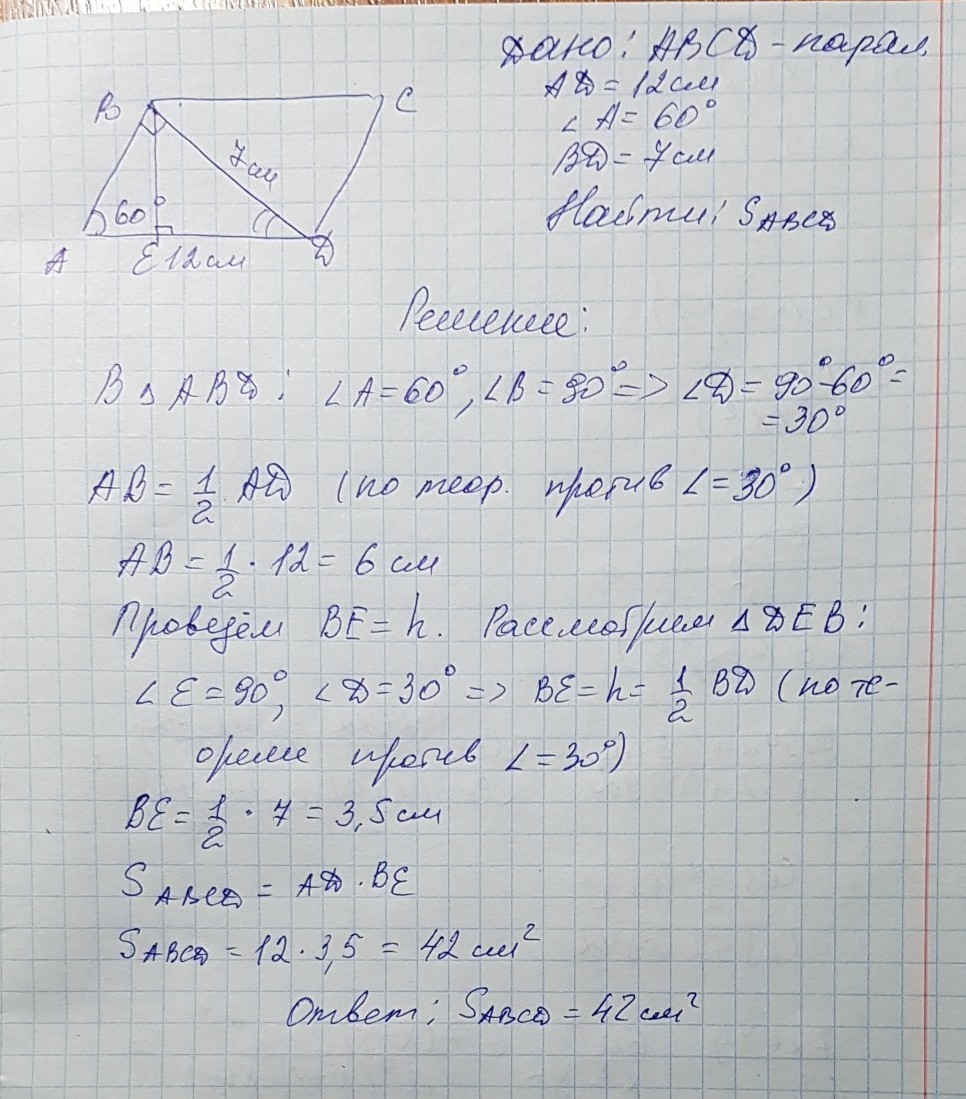 Дано: ABCD - парал.
AD = 12 см
∠A = 60°
BD = 7 см
Найти: S ABCD
B
C
7 см
60°
A
E
12 см
D
Решение:
В △ ABD: ∠A = 60°, ∠B = 90° => ∠D = 90° - 60° =
= 30°
AB = 1/2 AD (по теор. против ∠ = 30°)
AB = 1/2 · 12 = 6 см
Проведём BE = h. Рассмотрим △ DEB:
∠E = 90°, ∠D = 30° => BE = h = 1/2 BD (по те-
ореме против ∠ = 30°)
BE = 1/2 · 7 = 3,5 см
S ABCD = AD · BE
S ABCD = 12 · 3,5 = 42 см²
Ответ: S ABCD = 42 см²